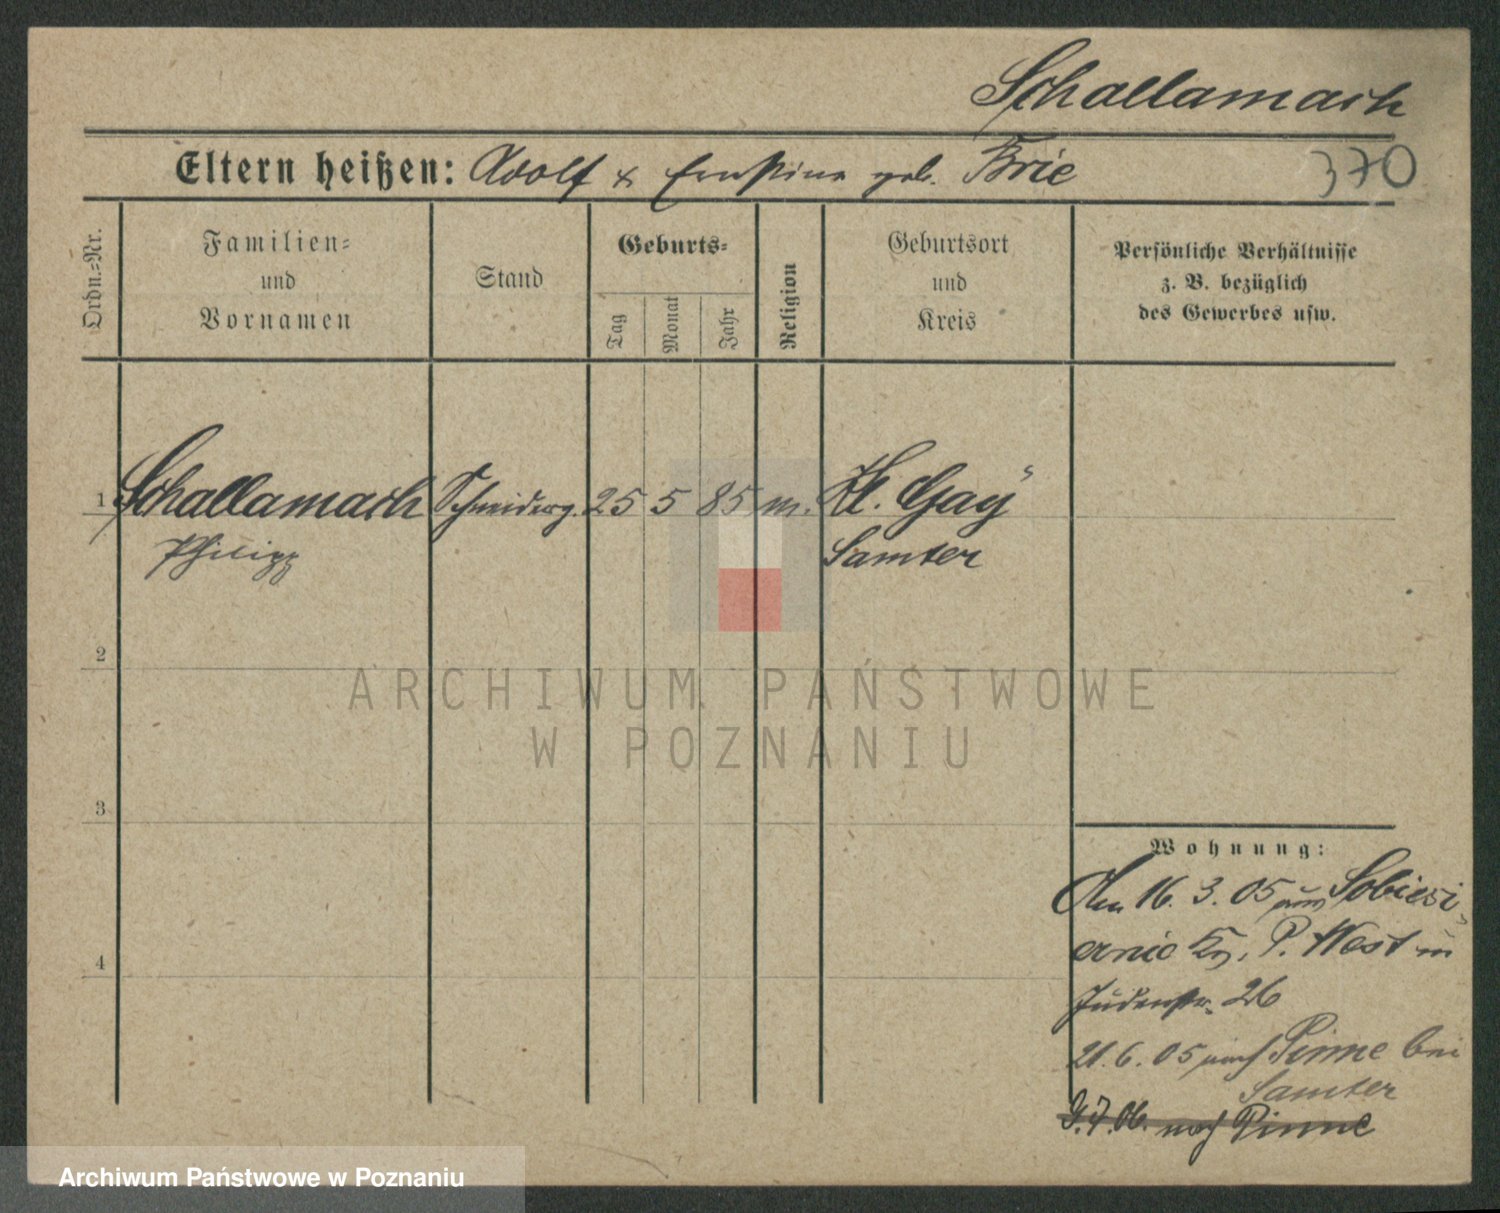 Schallamach
Eltern heißen: Adolf & Ernstine geb. Brie
370
Ordn.=Nr.
Familien=
und
Vornamen
Stand
Geburts=
Tag
Monat
Jahr
Religion
Geburtsort
und
Kreis
Persönliche Verhältnisse
z. B. bezüglich
des Gewerbes usw.
1 Schallamach Schneiderg. 25 5 85 m. Kl. Gay
Philipp Samter
2
ARCHIWUM PAŃSTWOWE
W POZNANIU
3
Wohnung:
Am 16. 3. 05 aus Sobiesi
ernie P. West in
4
Judenstr. 26
21. 6. 05 nach Pinne bei
Samter
9. 7. 06. nach Pinne
Archiwum Państwowe w Poznaniu